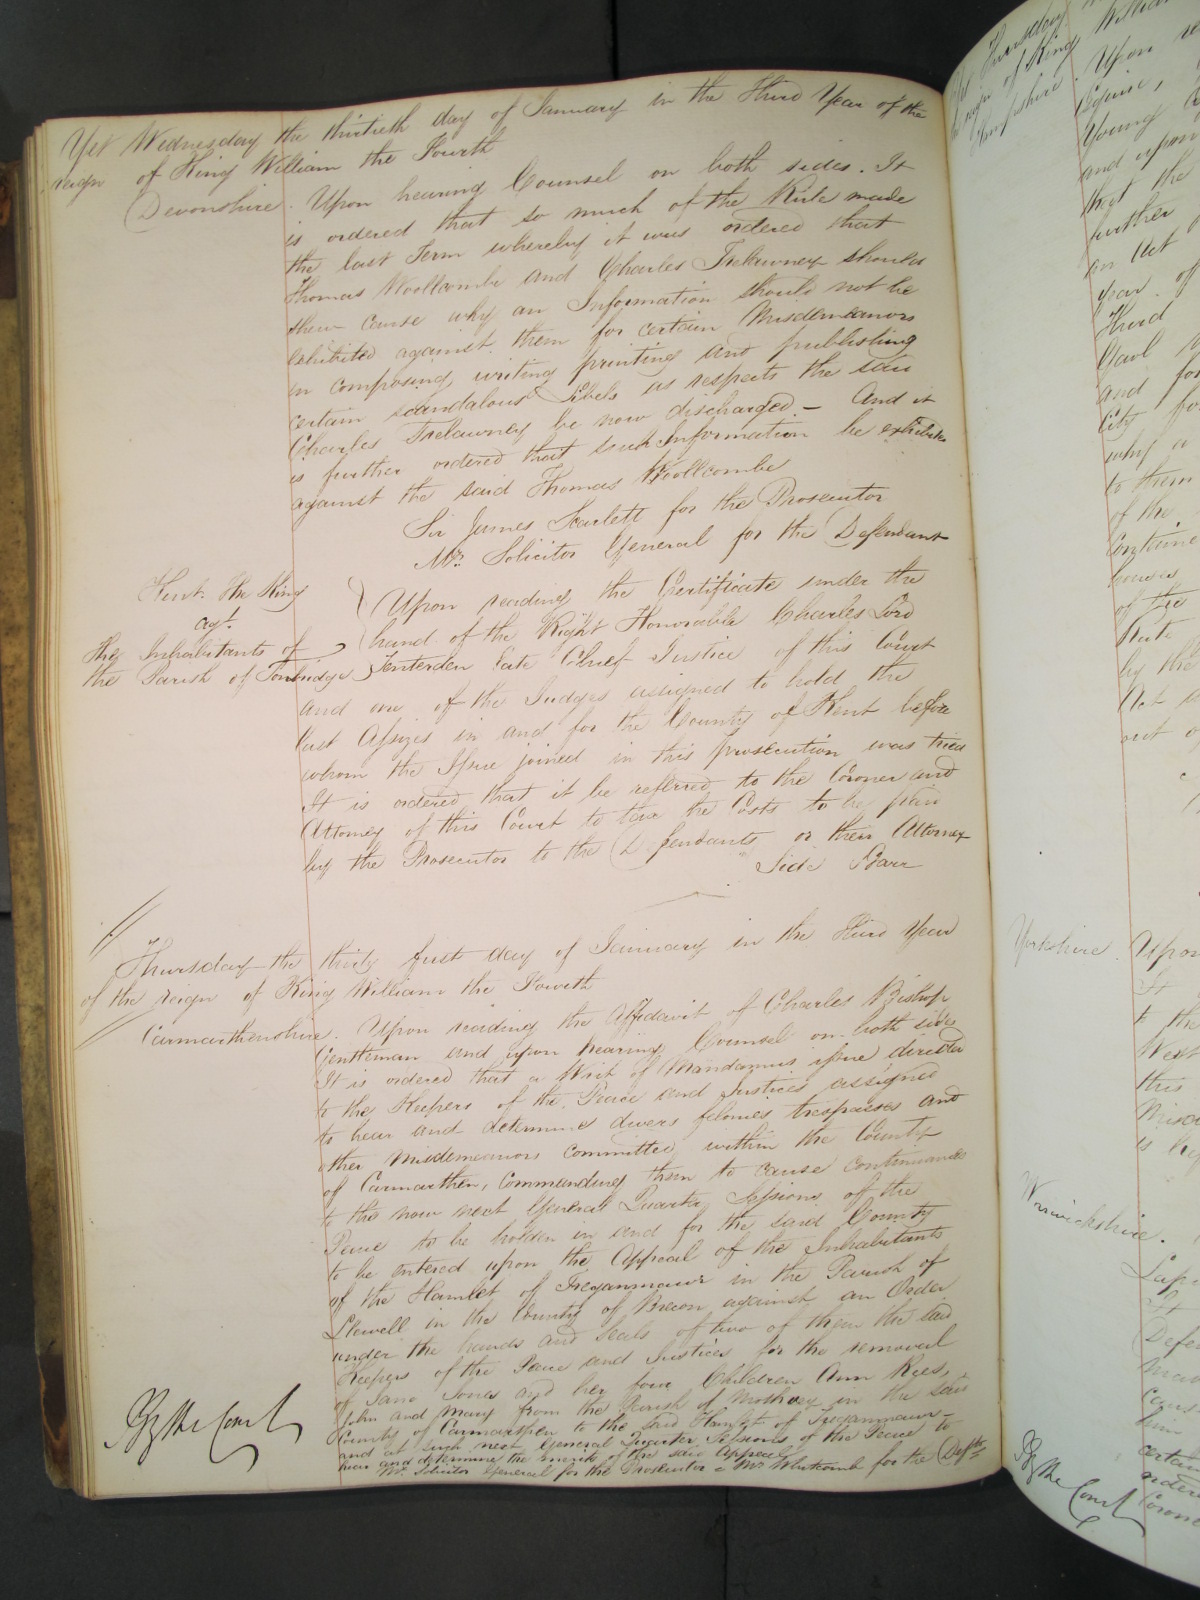 Yet Wednesday the thirtieth day of January in the Third Year of the
reign of King William the Fourth
Devonshire. Upon hearing Counsel on both sides. It
is ordered that so much of the Rule made
the last Term whereby it was ordered that
Thomas Woollcombe and Charles Trelawney should
shew cause why an Information should not be
exhibited against them for certain Misdemeanors
in composing, writing printing and publishing
certain scandalous Libels as respects the said
Charles Trelawney be now discharged. – And it
is further ordered that such Information be exhibited
against the said Thomas Woollcombe
Sir James Scarlett for the Prosecutor
Mr. Solicitor General for the Defendant
Kent. The King
agt.
The Inhabitants of
the Parish of Tonbridge
Upon reading the Certificate under the
hand of the Right Honorable Charles Lord
Tenterden late Chief Justice of this Court
and one of the Judges assigned to hold the
last Assizes in and for the County of Kent before
whom the Issue joined in this prosecution was tried
It is ordered that it be referred to the Coroner and
Attorney of this Court to tax the Costs to be paid
by the Prosecutor to the Defendants or their Attorney
Side Barr
Thursday the thirty first day of January in the Third Year
of the reign of King William the Fourth
Carmarthenshire. Upon reading the Affidavit of Charles Bishop
Gentleman and upon hearing Counsel on both sides
It is ordered that a Writ of Mandamus issue directed
to the Keepers of the Peace and Justices assigned
to hear and determine divers felonies trespasses and
other Misdemeanors committed within the County
of Carmarthen, Commanding them to cause continuances
to the now next General Quarter Sessions of the
Peace to be holden in and for the said County
to be entered upon the Appeal of the Inhabitants
of the Hamlet of Treyanmawr in the Parish of
Llewell in the County of Brecon against an Order
under the hands and Seals of two of them the said
Keepers of the Peace and Justices for the removal
of Jane Jones and her four Children Ann Rees,
John and Mary from the Parish of Mothvey in the said
County of Carmarthen to the said Hamlet of Treyanmawr –
and at such next General Quarter Sessions of the Peace to
hear and determine the merits of the said Appeal
Mr. Solicitor General for the Prosecutor – Mr. Whitcomb for the Defts.
By the Court
Yet Thursday
reign of King William
Hampshire. Upon
Esquire,
Young
and upon
that the
further
an Act
year of
Third
Gaol
and for
City for
why a
to them
of the
Containe
houses
of the
State
by the
Act
out o
Yorkshire. Upon
It
to the
West
this
Misd
is
Warwickshire.
Defen
him
certain
ordered
Corone
By the Court